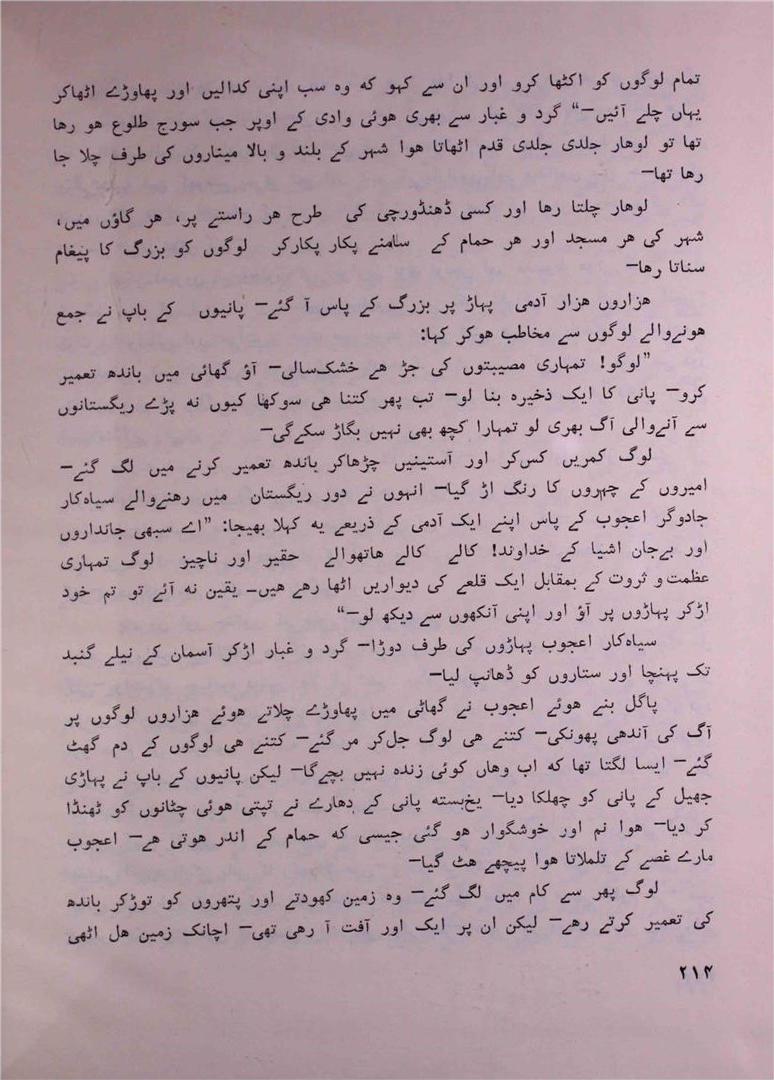 تمام لوگوں کو اکٹھا کرو اور ان سے کہو که وه سب اپنی کدالیں اور پھاوڑے اٹھاکر
یہاں چلے آئیں—“ گرد و غبار سے بھری هوئی وادی کے اوپر جب سورج طلوع هو رها
تھا تو لوهار جلدی جلدی قدم اٹھاتا هوا شہر کے بلند و بالا میناروں کی طرف چلا جا
رها تھا—
لوهار چلتا رها اور کسی ڈهنڈورچی کی طرح هر راستے پر، هر گاؤں میں،
شہر کی هر مسجد اور هر حمام کے سامنے پکار پکارکر لوگوں کو بزرگ کا پیغام
سناتا رها—
هزاروں هزار آدمی پہاڑ پر بزرگ کے پاس آ گئے— پانیوں کے باپ نے جمع
هونےوالے لوگوں سے مخاطب هوکر کہا:
”لوگو! تمہاری مصیبتوں کی جڑ هے خشک‌سالی— آؤ گھائی میں بانده تعمیر
کرو— پانی کا ایک ذخیره بنا لو— تب پھر کتنا هی سوکھا کیوں نه پڑے ریگستانوں
سے آنےوالی آگ بھری لو تمہارا کچھ بھی نہیں بگاڑ سکےگی—
لوگ کمریں کس‌کر اور آستینیں چڑهاکر بانده تعمیر کرنے میں لگ گئے—
امیروں کے چہروں کا رنگ اڑ گیا— انہوں نے دور ریگستان میں رهنےوالے سیاه‌کار
جادوگر اعجوب کے پاس اپنے ایک آدمی کے ذریعے یه کہلا بھیجا: ”اے سبھی جانداروں
اور بےجان اشیا کے خداوند! کالے کالے هاتھوالے حقیر اور ناچیز لوگ تمہاری
عظمت و ثروت کے بمقابل ایک قلعے کی دیواریں اٹھا رهے هیں— یقین نه آئے تو تم خود
اڑکر پہاڑوں پر آؤ اور اپنی آنکھوں سے دیکھ لو—“
سیاه‌کار اعجوب پہاڑوں کی طرف دوڑا— گرد و غبار اڑکر آسمان کے نیلے گنبد
تک پہنچا اور ستاروں کو ڈهانپ لیا—
پاگل بنے هوئے اعجوب نے گھاٹی میں پھاوڑے چلاتے هوئے هزاروں لوگوں پر
آگ کی آندهی پھونکی— کتنے هی لوگ جل‌کر مر گئے— کتنے هی لوگوں کے دم گھٹ
گئے— ایسا لگتا تھا که اب وهاں کوئی زنده نہیں بچےگا— لیکن پانیوں کے باپ نے پہاڑی
جھیل کے پانی کو چھلکا دیا— یخ‌بسته پانی کے دهارے نے تپتی هوئی چٹانوں کو ٹھنڈا
کر دیا— هوا نم اور خوشگوار هو گئی جیسی که حمام کے اندر هوتی هے— اعجوب
مارے غصے کے تلملاتا هوا پیچھے هٹ گیا—
لوگ پھر سے کام میں لگ گئے— وه زمین کھودتے اور پتھروں کو توڑکر بانده
کی تعمیر کرتے رهے— لیکن ان پر ایک اور آفت آ رهی تھی— اچانک زمین هل اٹھی
۲۱۴